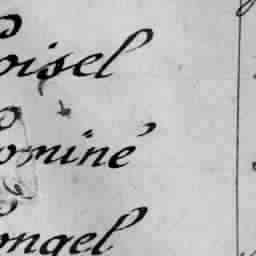 oisel
ominé
ongel